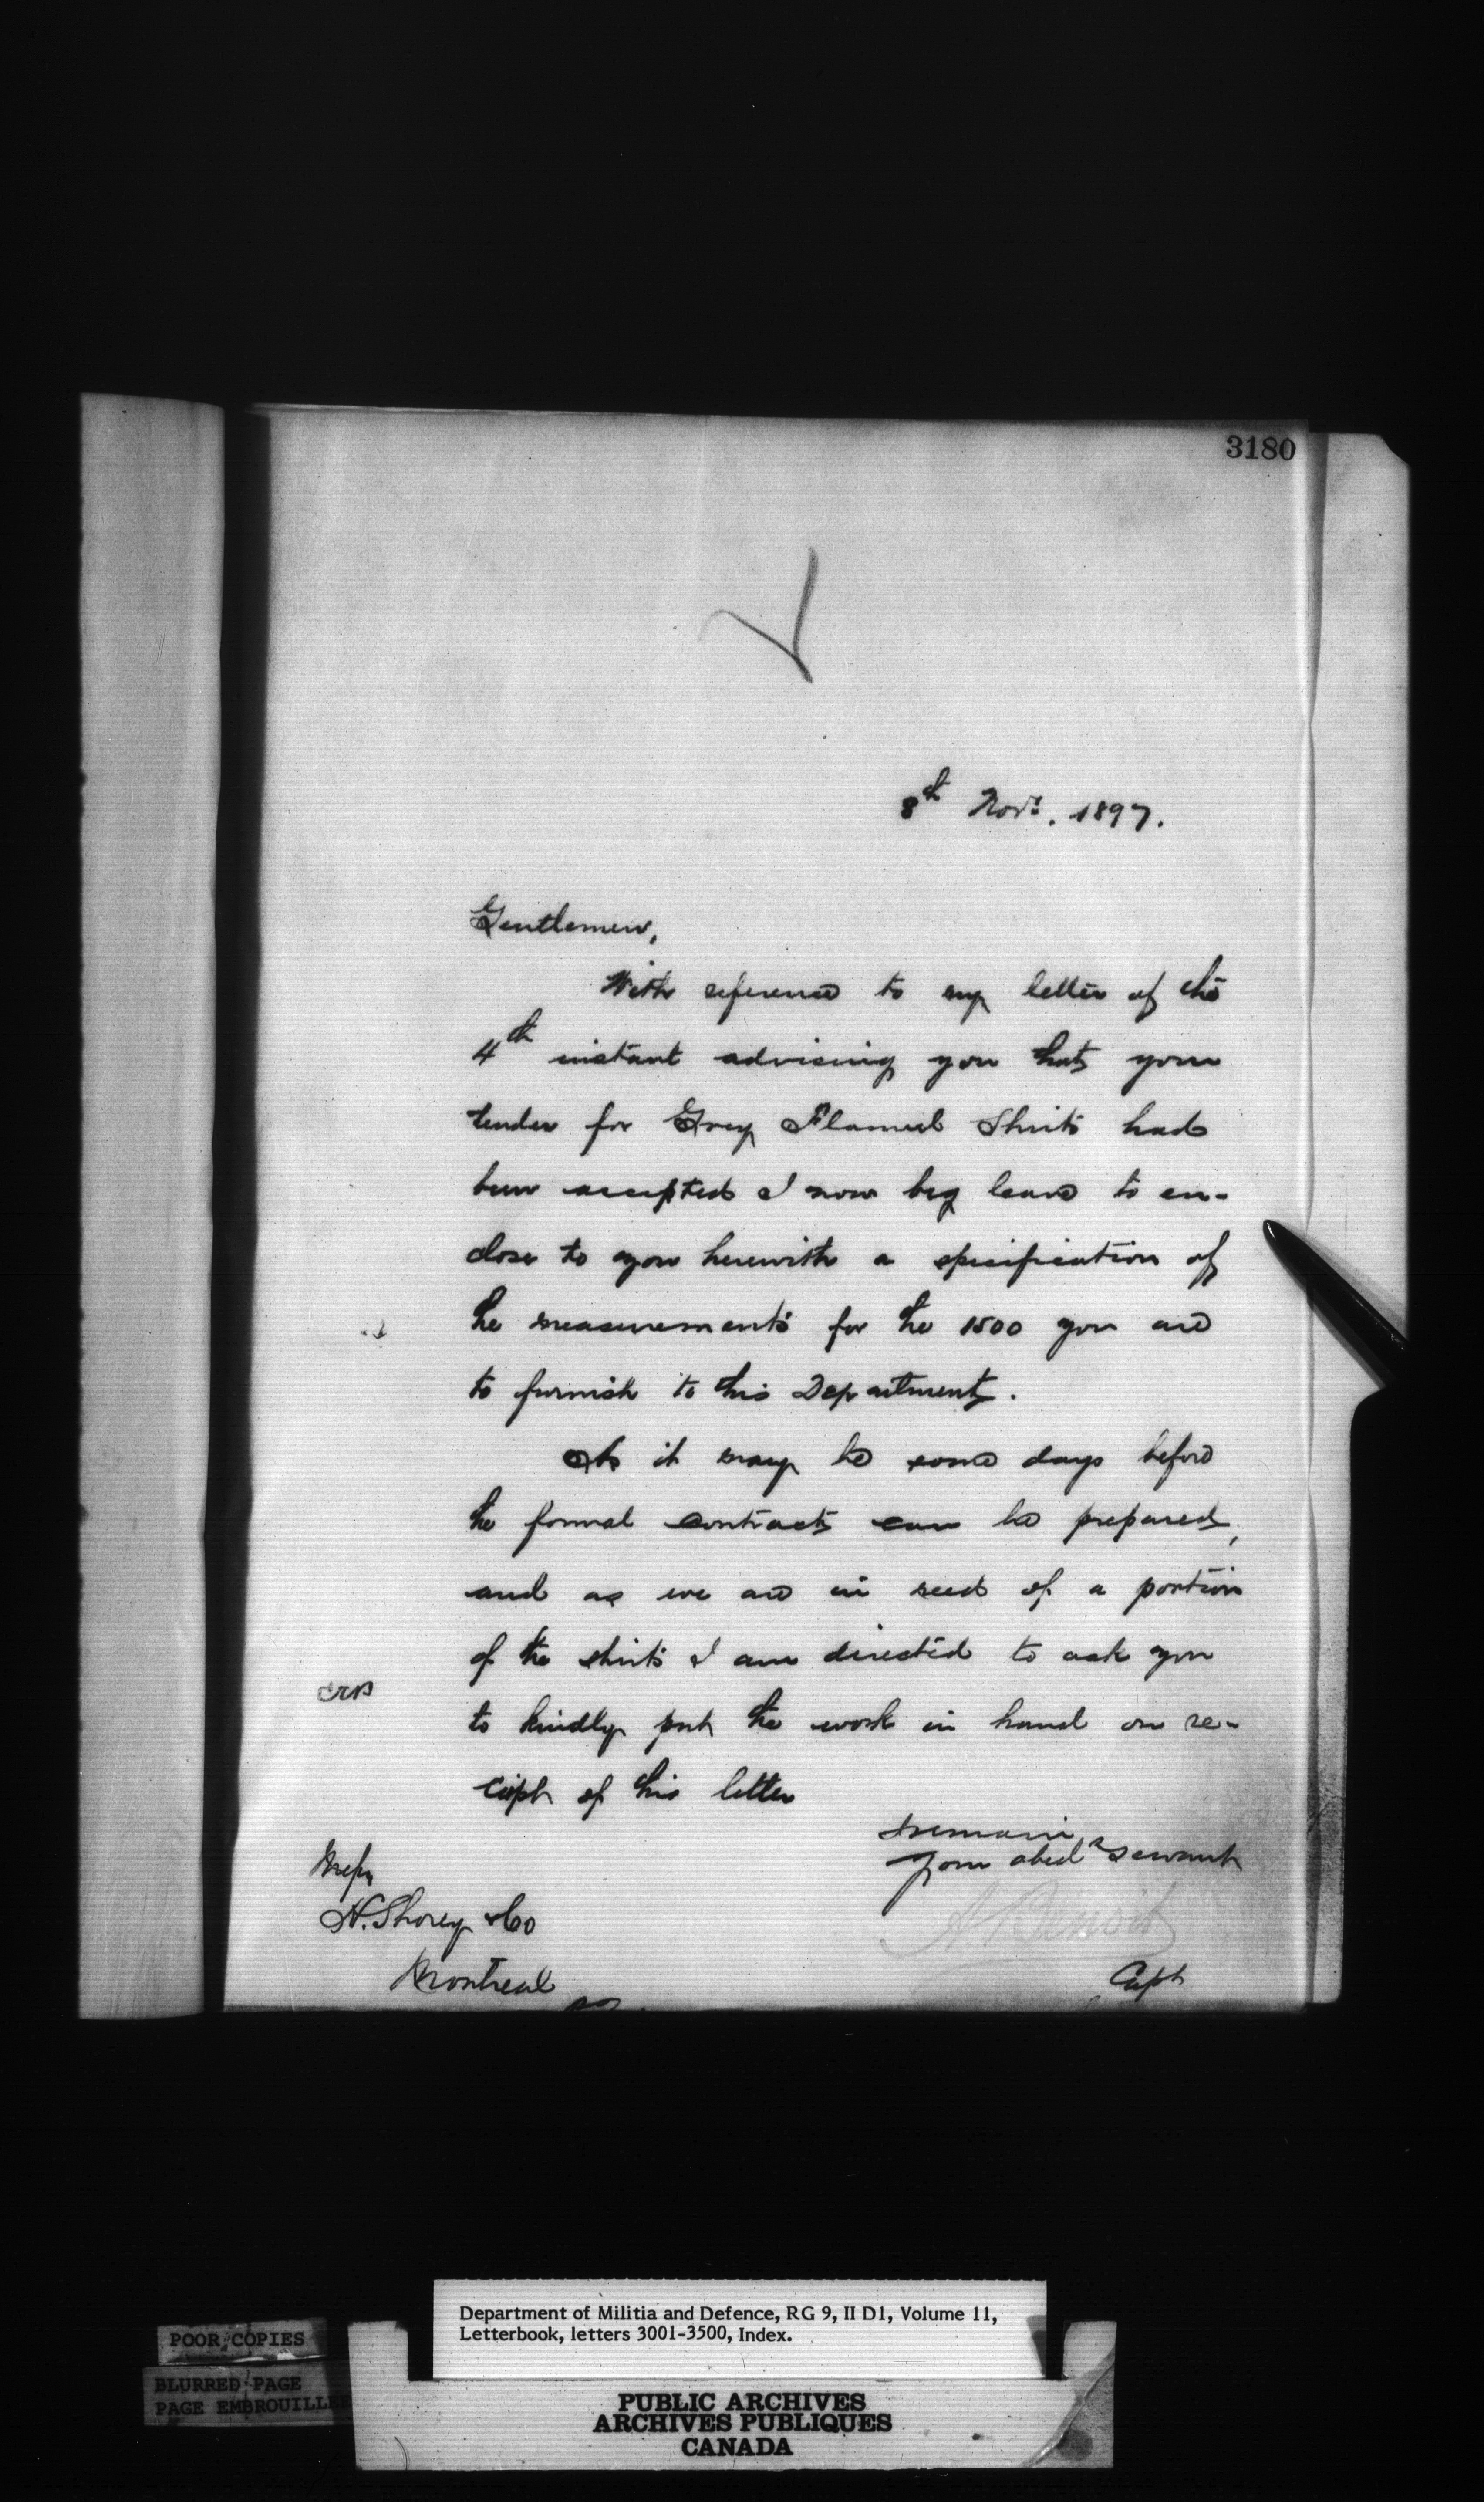 3180
8th Novr. 1897.
Gentlemen,
With reference to my letter of the
4th instant advising you that your
tender for Grey Flannel Shirts had
been accepted I now beg leave to en-
close to you herewith a specification of
the measurements for the 1500 you are
to furnish to this Department.
As it may be some days before
the formal contract can be prepared,
and as we are in need of a portion
of the shirts I am directed to ask you
to kindly put the work in hand on re-
ceipt of this letter
I remain
Your obedt servant
A. Benoit
Capt
Messrs
H. Shorey & Co
Montreal
Department of Militia and Defence, RG 9, II D1, Volume 11,
Letterbook, letters 3001-3500, Index.
POOR COPIES
BLURRED PAGE
PAGE EMBROUILLEE
PUBLIC ARCHIVES
ARCHIVES PUBLIQUES
CANADA